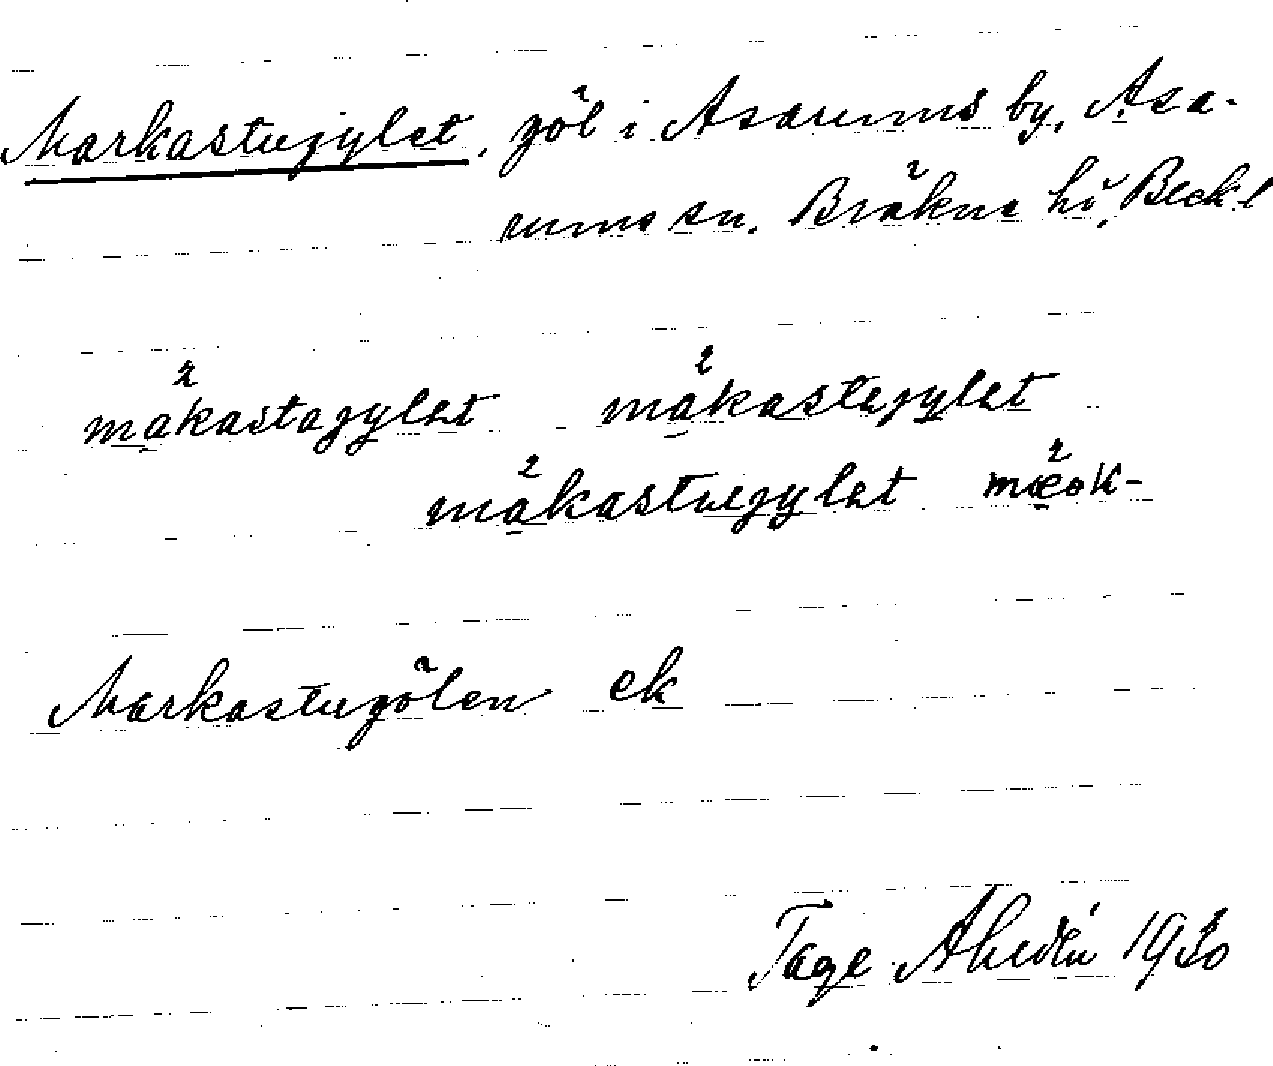 Markastugylet, göl i Asarums by, Asa-
rums sn. Bräkne hd, Blek.
måkastagylət måkastegylət
måkastuegylət
Markastugölen ek
Tage 1930